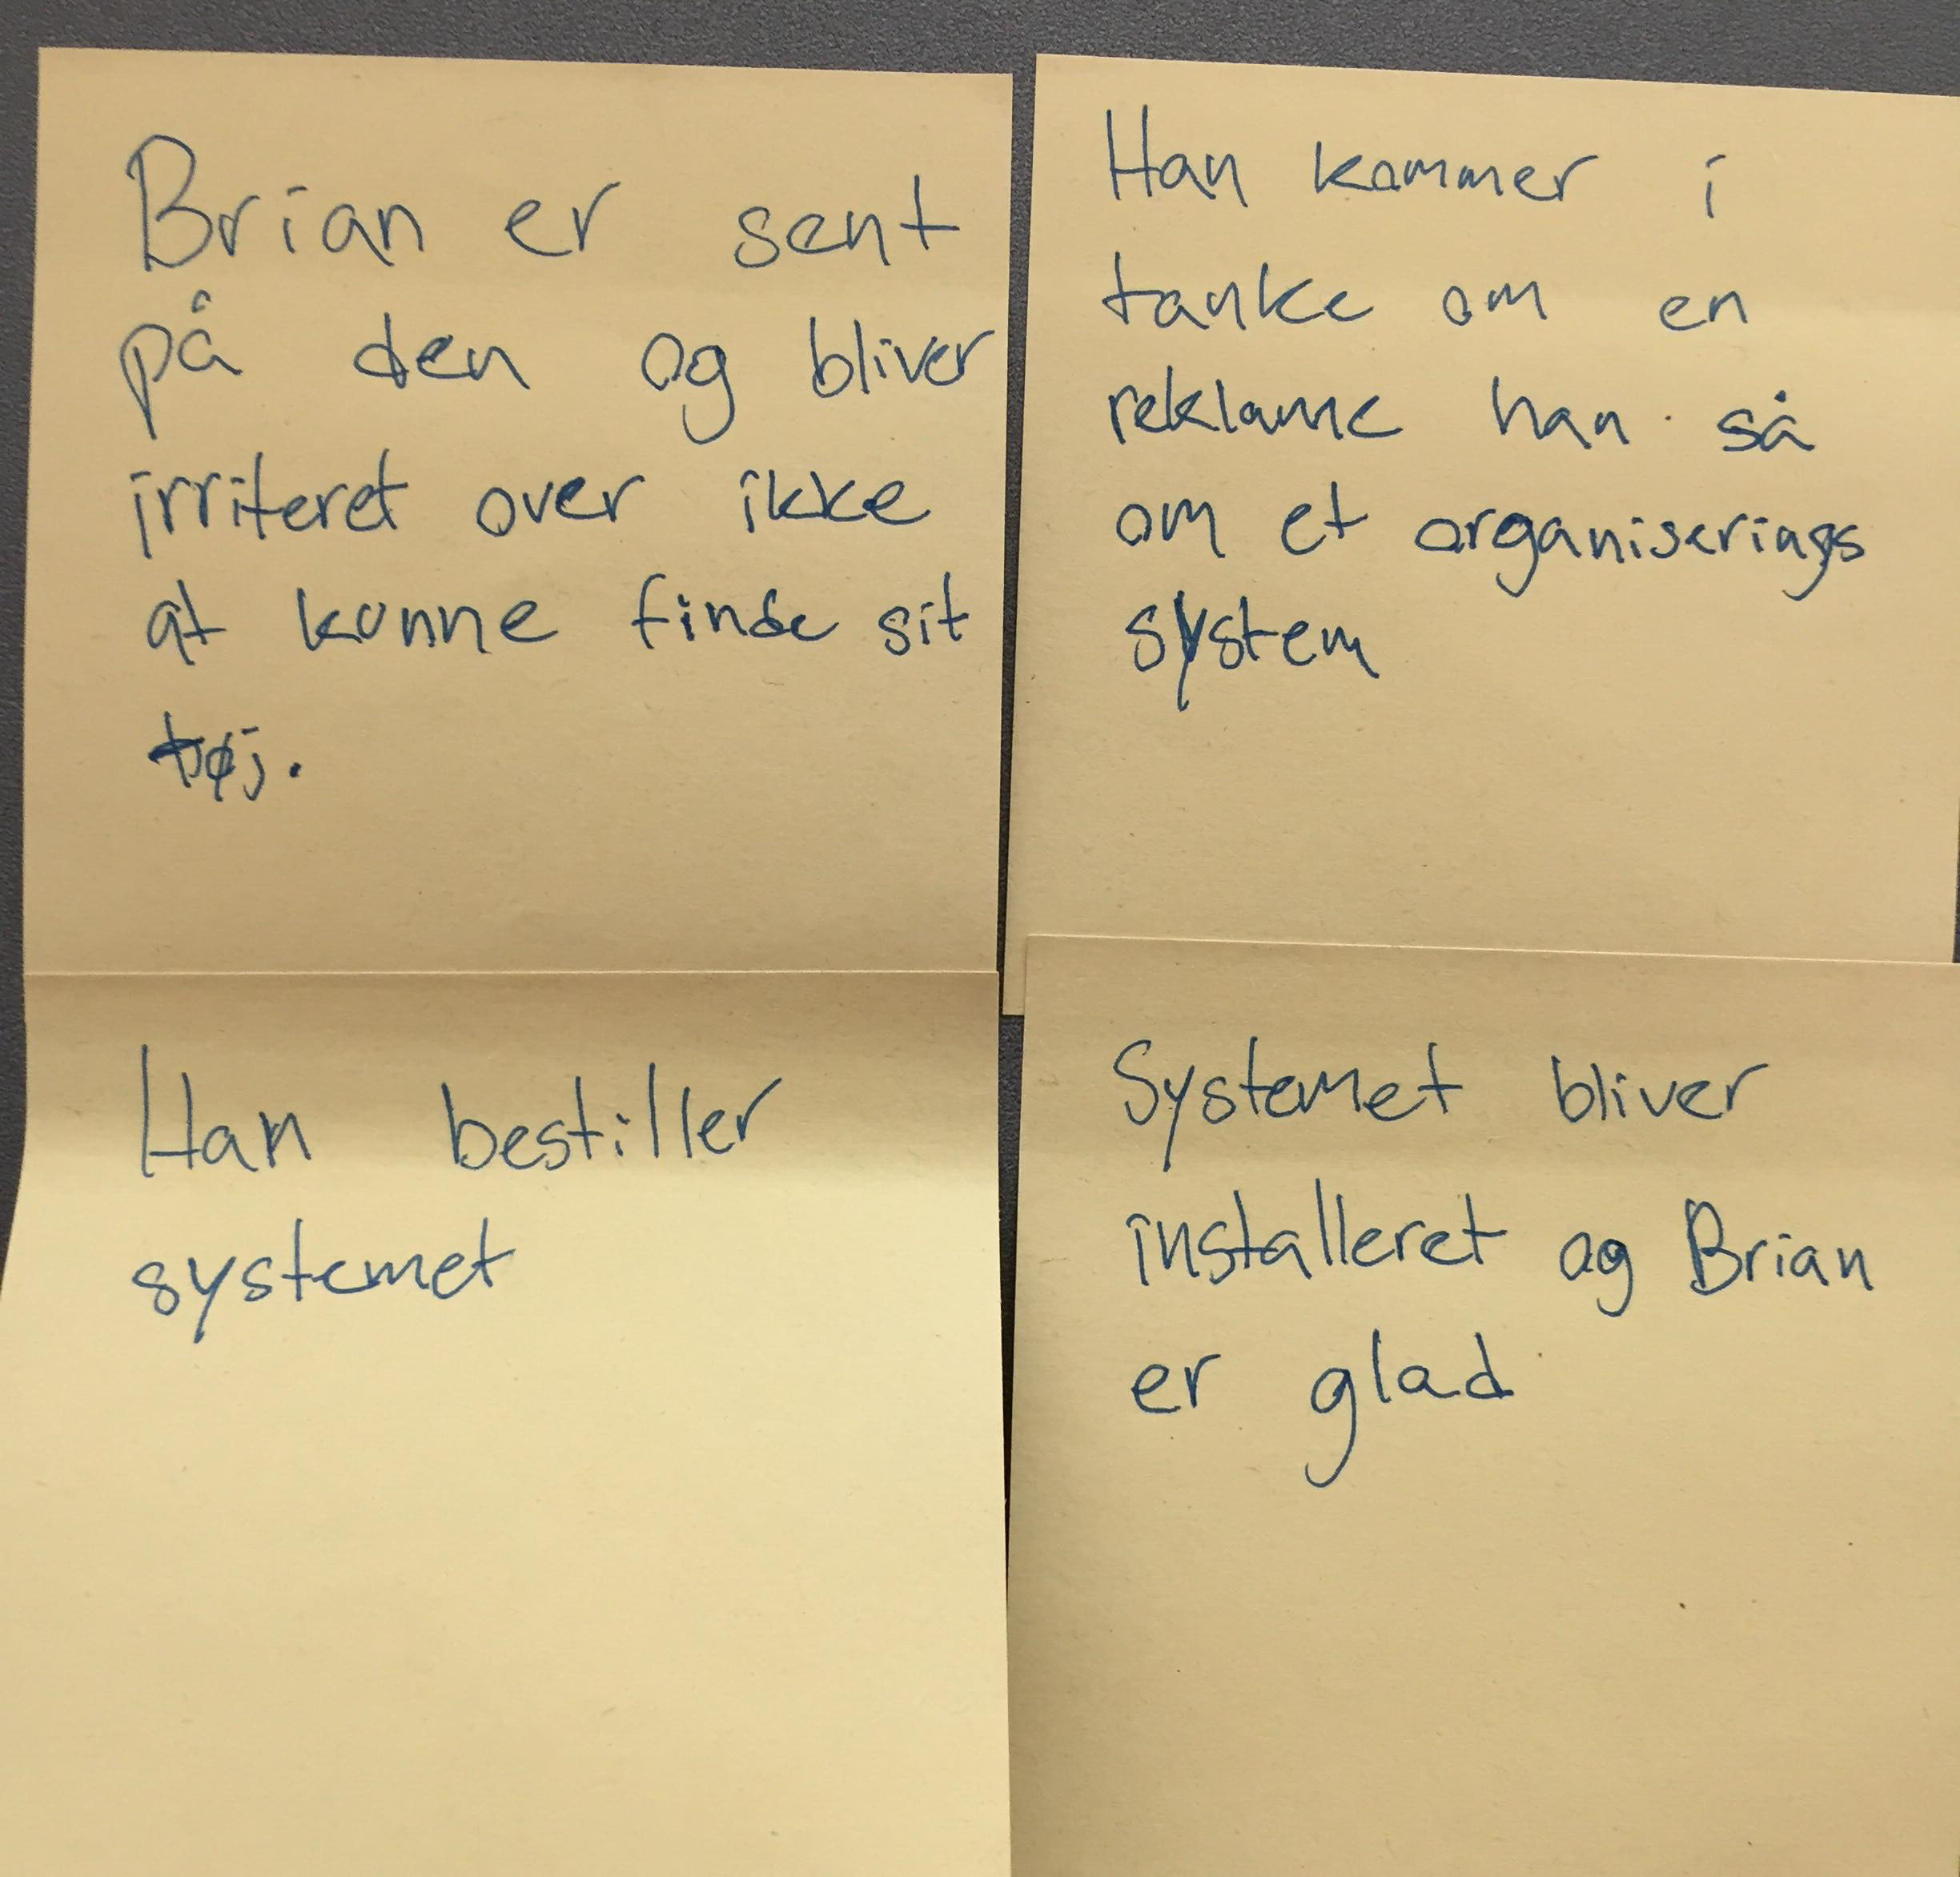 Brian er sent
på den og bliver
irriteret over ikke
at kunne finde sit
tøj.
Han kommer i
tanke om en
reklame han så
om et organiserings
system
Han bestiller
systemet
Systemet bliver
installeret og Brian
er glad